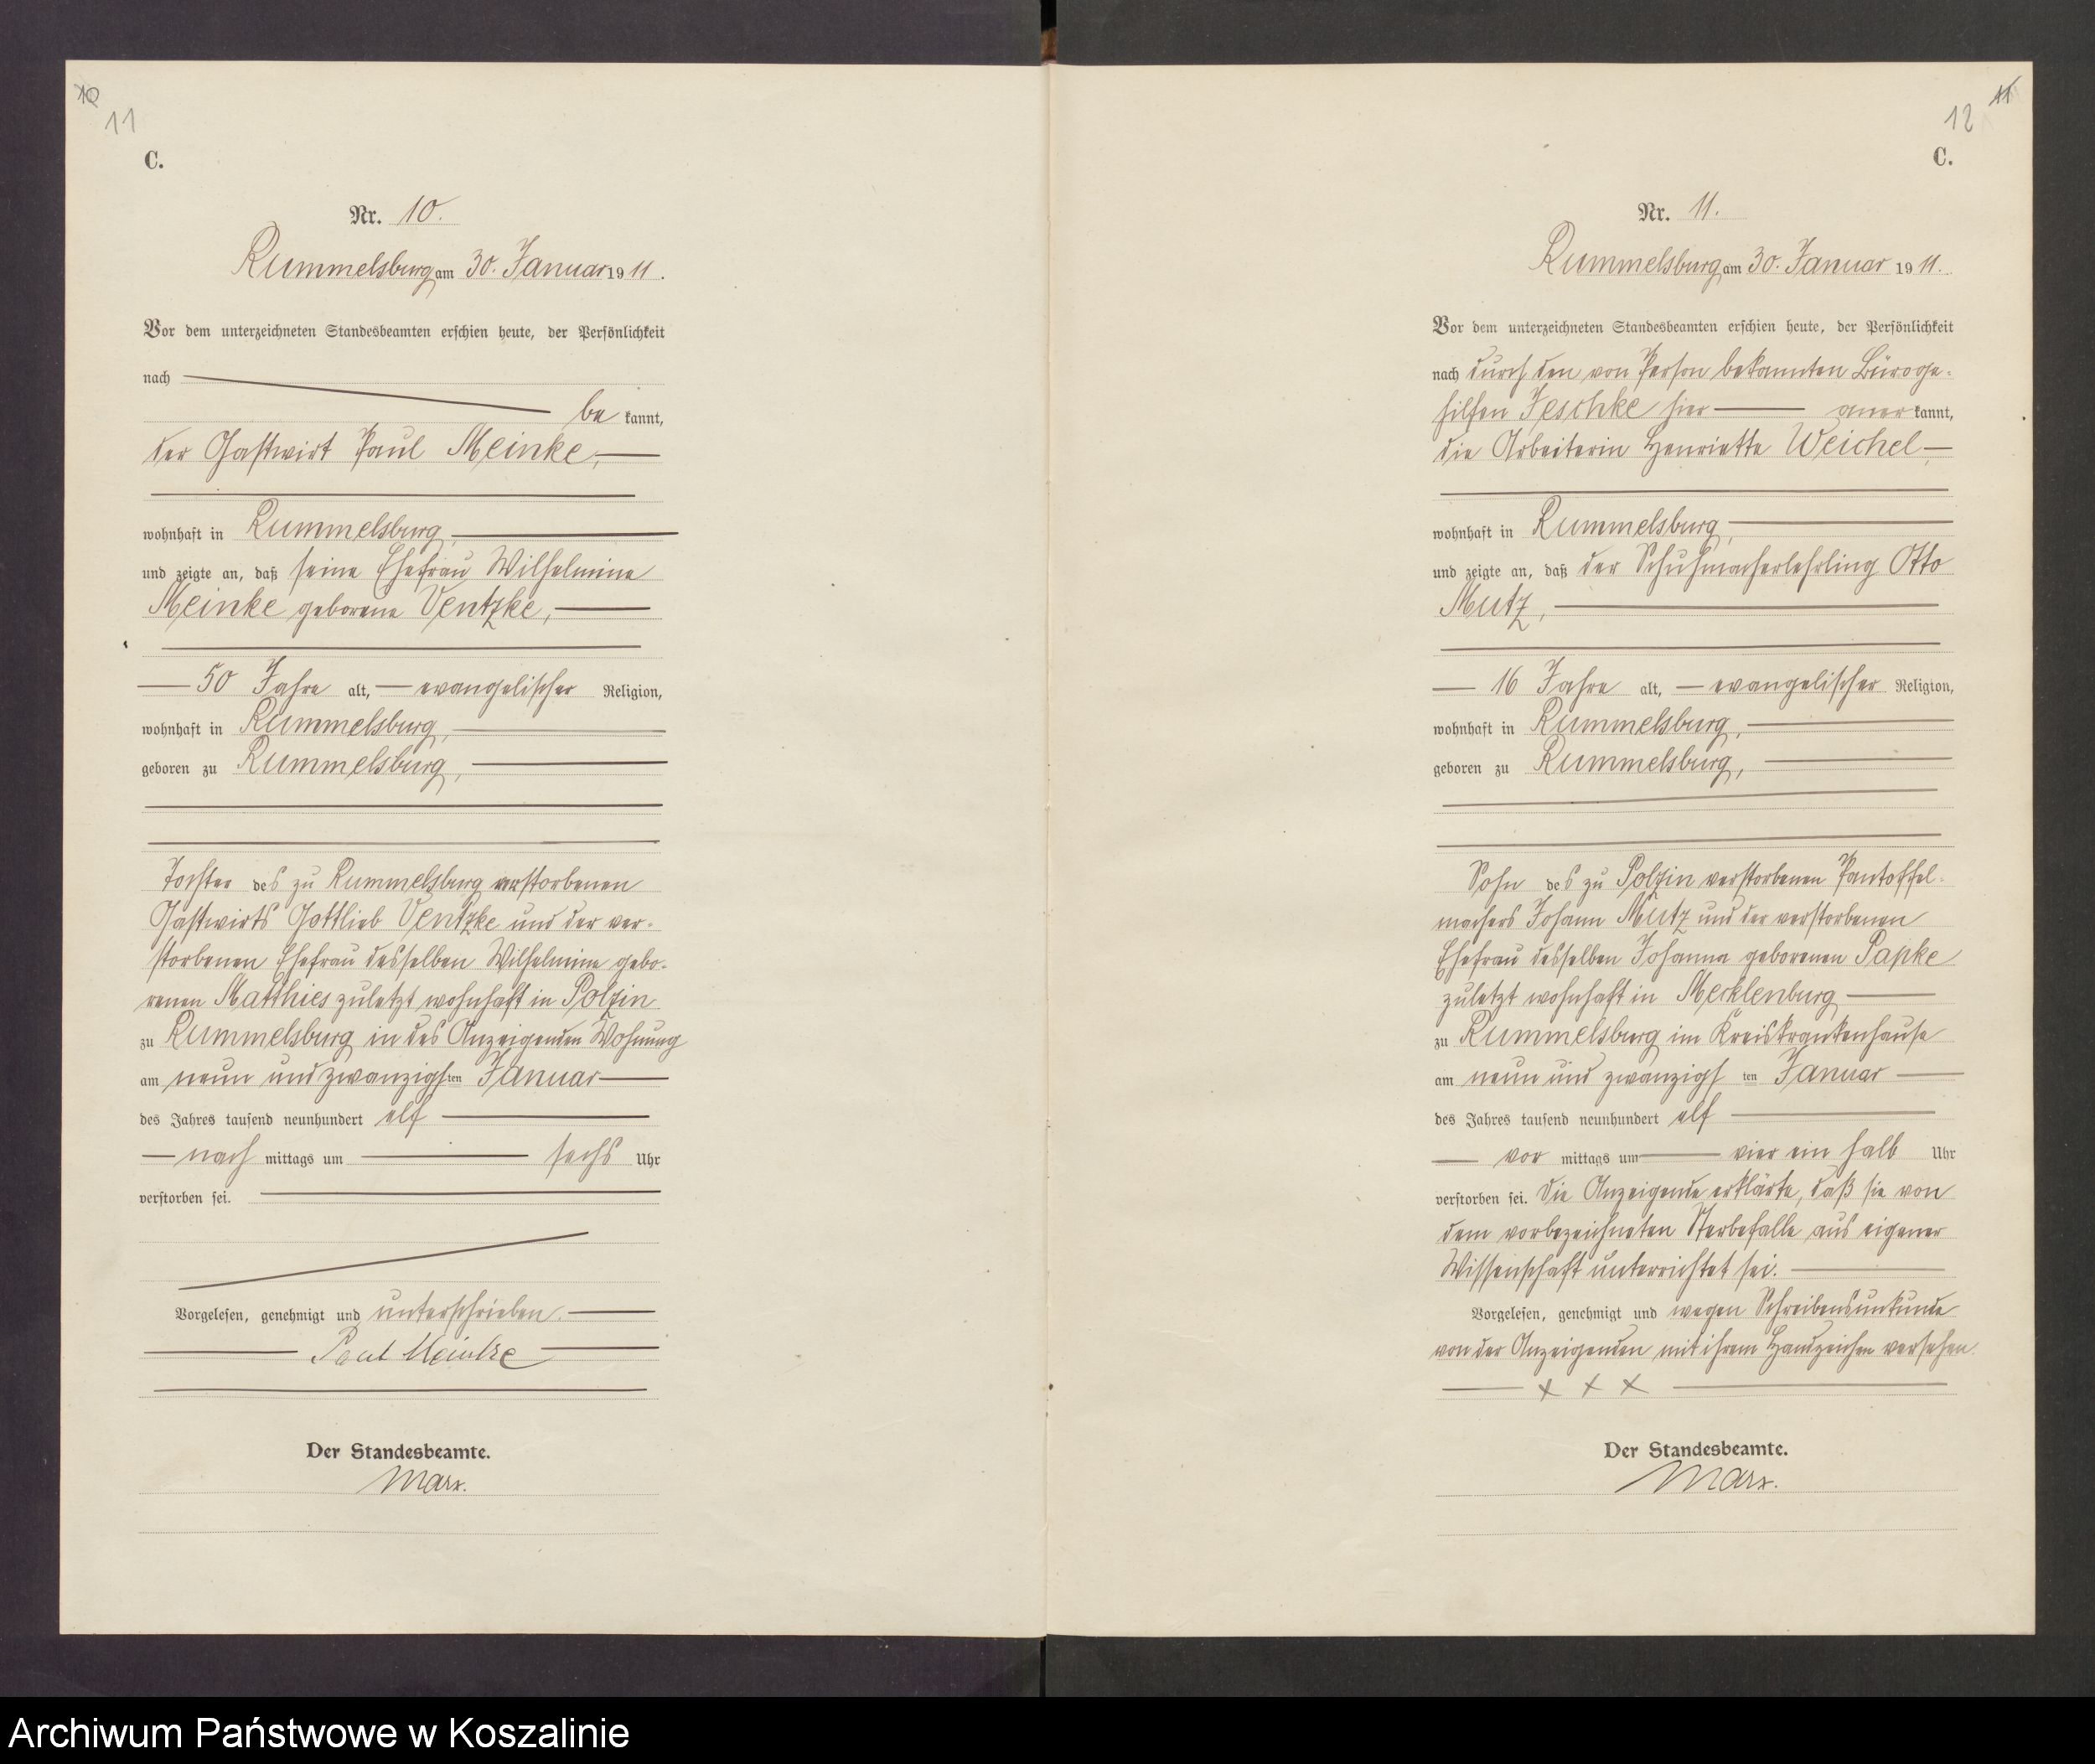 10
11
C.
Nr. 10.
Rummelsburg am 30. Januar 1911.
Vor dem unterzeichneten Standesbeamten erschien heute, der Persönlichkeit
nach
be kannt,
der Gastwirt Paul Meinke,
wohnhaft in Rummelsburg,
und zeigte an, daß seine Ehefrau Wilhelmine
Meinke geborene Ventzke,
50 Jahre alt, evangelischer Religion,
wohnhaft in Rummelsburg,
geboren zu Rummelsburg,
Tochter des zu Rummelsburg verstorbenen
Gastwirts Gottlieb Ventzke und der ver-
storbenen Ehefrau desselben Wilhelmine gebo-
renen Matthies zuletzt wohnhaft in Polzin
zu Rummelsburg in des Anzeigenden Wohnung
am neun und zwanzigsten Januar
des Jahres tausend neunhundert elf
nach mittags um sechs Uhr
verstorben sei.
Vorgelesen, genehmigt und unterschrieben.
Paul Meinke
Der Standesbeamte.
Marx.
11
12
C.
Nr. 11.
Rummelsburg am 30. Januar 1911.
Vor dem unterzeichneten Standesbeamten erschien heute, der Persönlichkeit
nach durch den von Person bekannten Büroge-
hilfen Jeschke hier aner kannt,
die Arbeiterin Henriette Weichel,
wohnhaft in Rummelsburg,
und zeigte an, daß der Schuhmacherlehrling Otto
Mutz,
16 Jahre alt, evangelischer Religion,
wohnhaft in Rummelsburg,
geboren zu Rummelsburg,
Sohn des zu Polzin verstorbenen Pantoffel-
machers Johann Mutz und der verstorbenen
Ehefrau desselben Johanna geborenen Papke
zuletzt wohnhaft in Mecklenburg
zu Rummelsburg im Kreiskrankenhause
am neun und zwanzigsten Januar
des Jahres tausend neunhundert elf
vor mittags um vier ein halb Uhr
verstorben sei. Die Anzeigende erklärte, daß sie von
dem vorbezeichneten Sterbefalle aus eigener
Wissenschaft unterrichtet sei.
Vorgelesen, genehmigt und wegen Schreibensunkunde
von der Anzeigenden mit ihrem Handzeichen versehen.
x x x
Der Standesbeamte.
Marx.
Archiwum Państwowe w Koszalinie